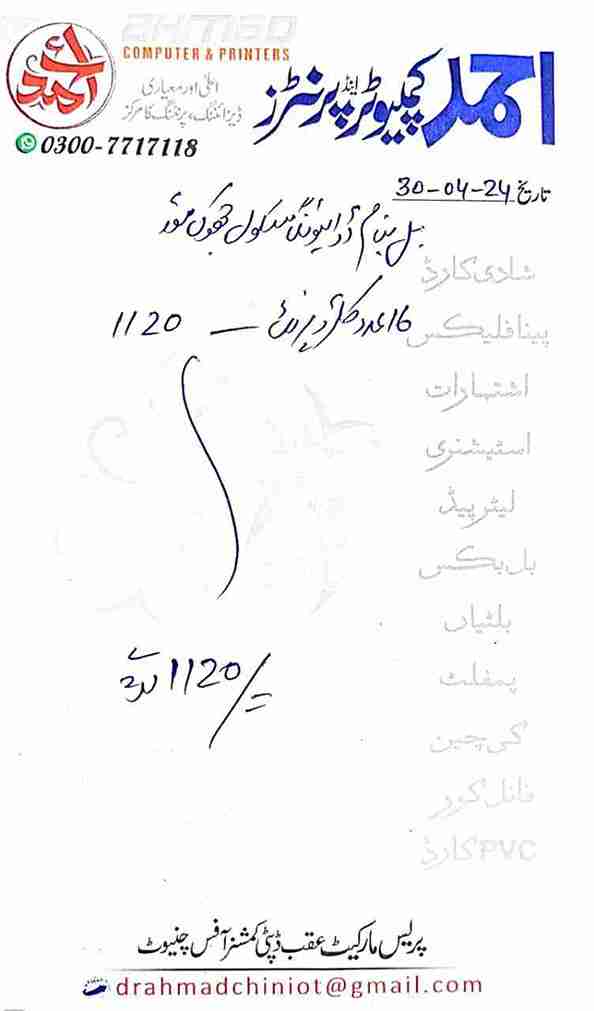 AHMAD
COMPUTER & PRINTERS
احمد
احمد کمپیوٹر اینڈ پرنٹرز
اعلیٰ اور معیاری
ڈیزائننگ، پرنٹنگ کا مرکز
0300-7717118
تاریخ 30-04-24
بل بنام ڈرائیونگ سکول جھوک موڑ
شادی کارڈ
16 عدد کلر پرنٹ — 1120
پینا فلیکس
اشتہارات
اسٹیشنری
لیٹر پیڈ
بل بکس
بلٹیاں
1120/=
پمفلٹ
کی چین
فائل کور
PVC کارڈ
پریس مارکیٹ عقب ڈپٹی کمشنر آفس چنیوٹ
drahmadchiniot@gmail.com